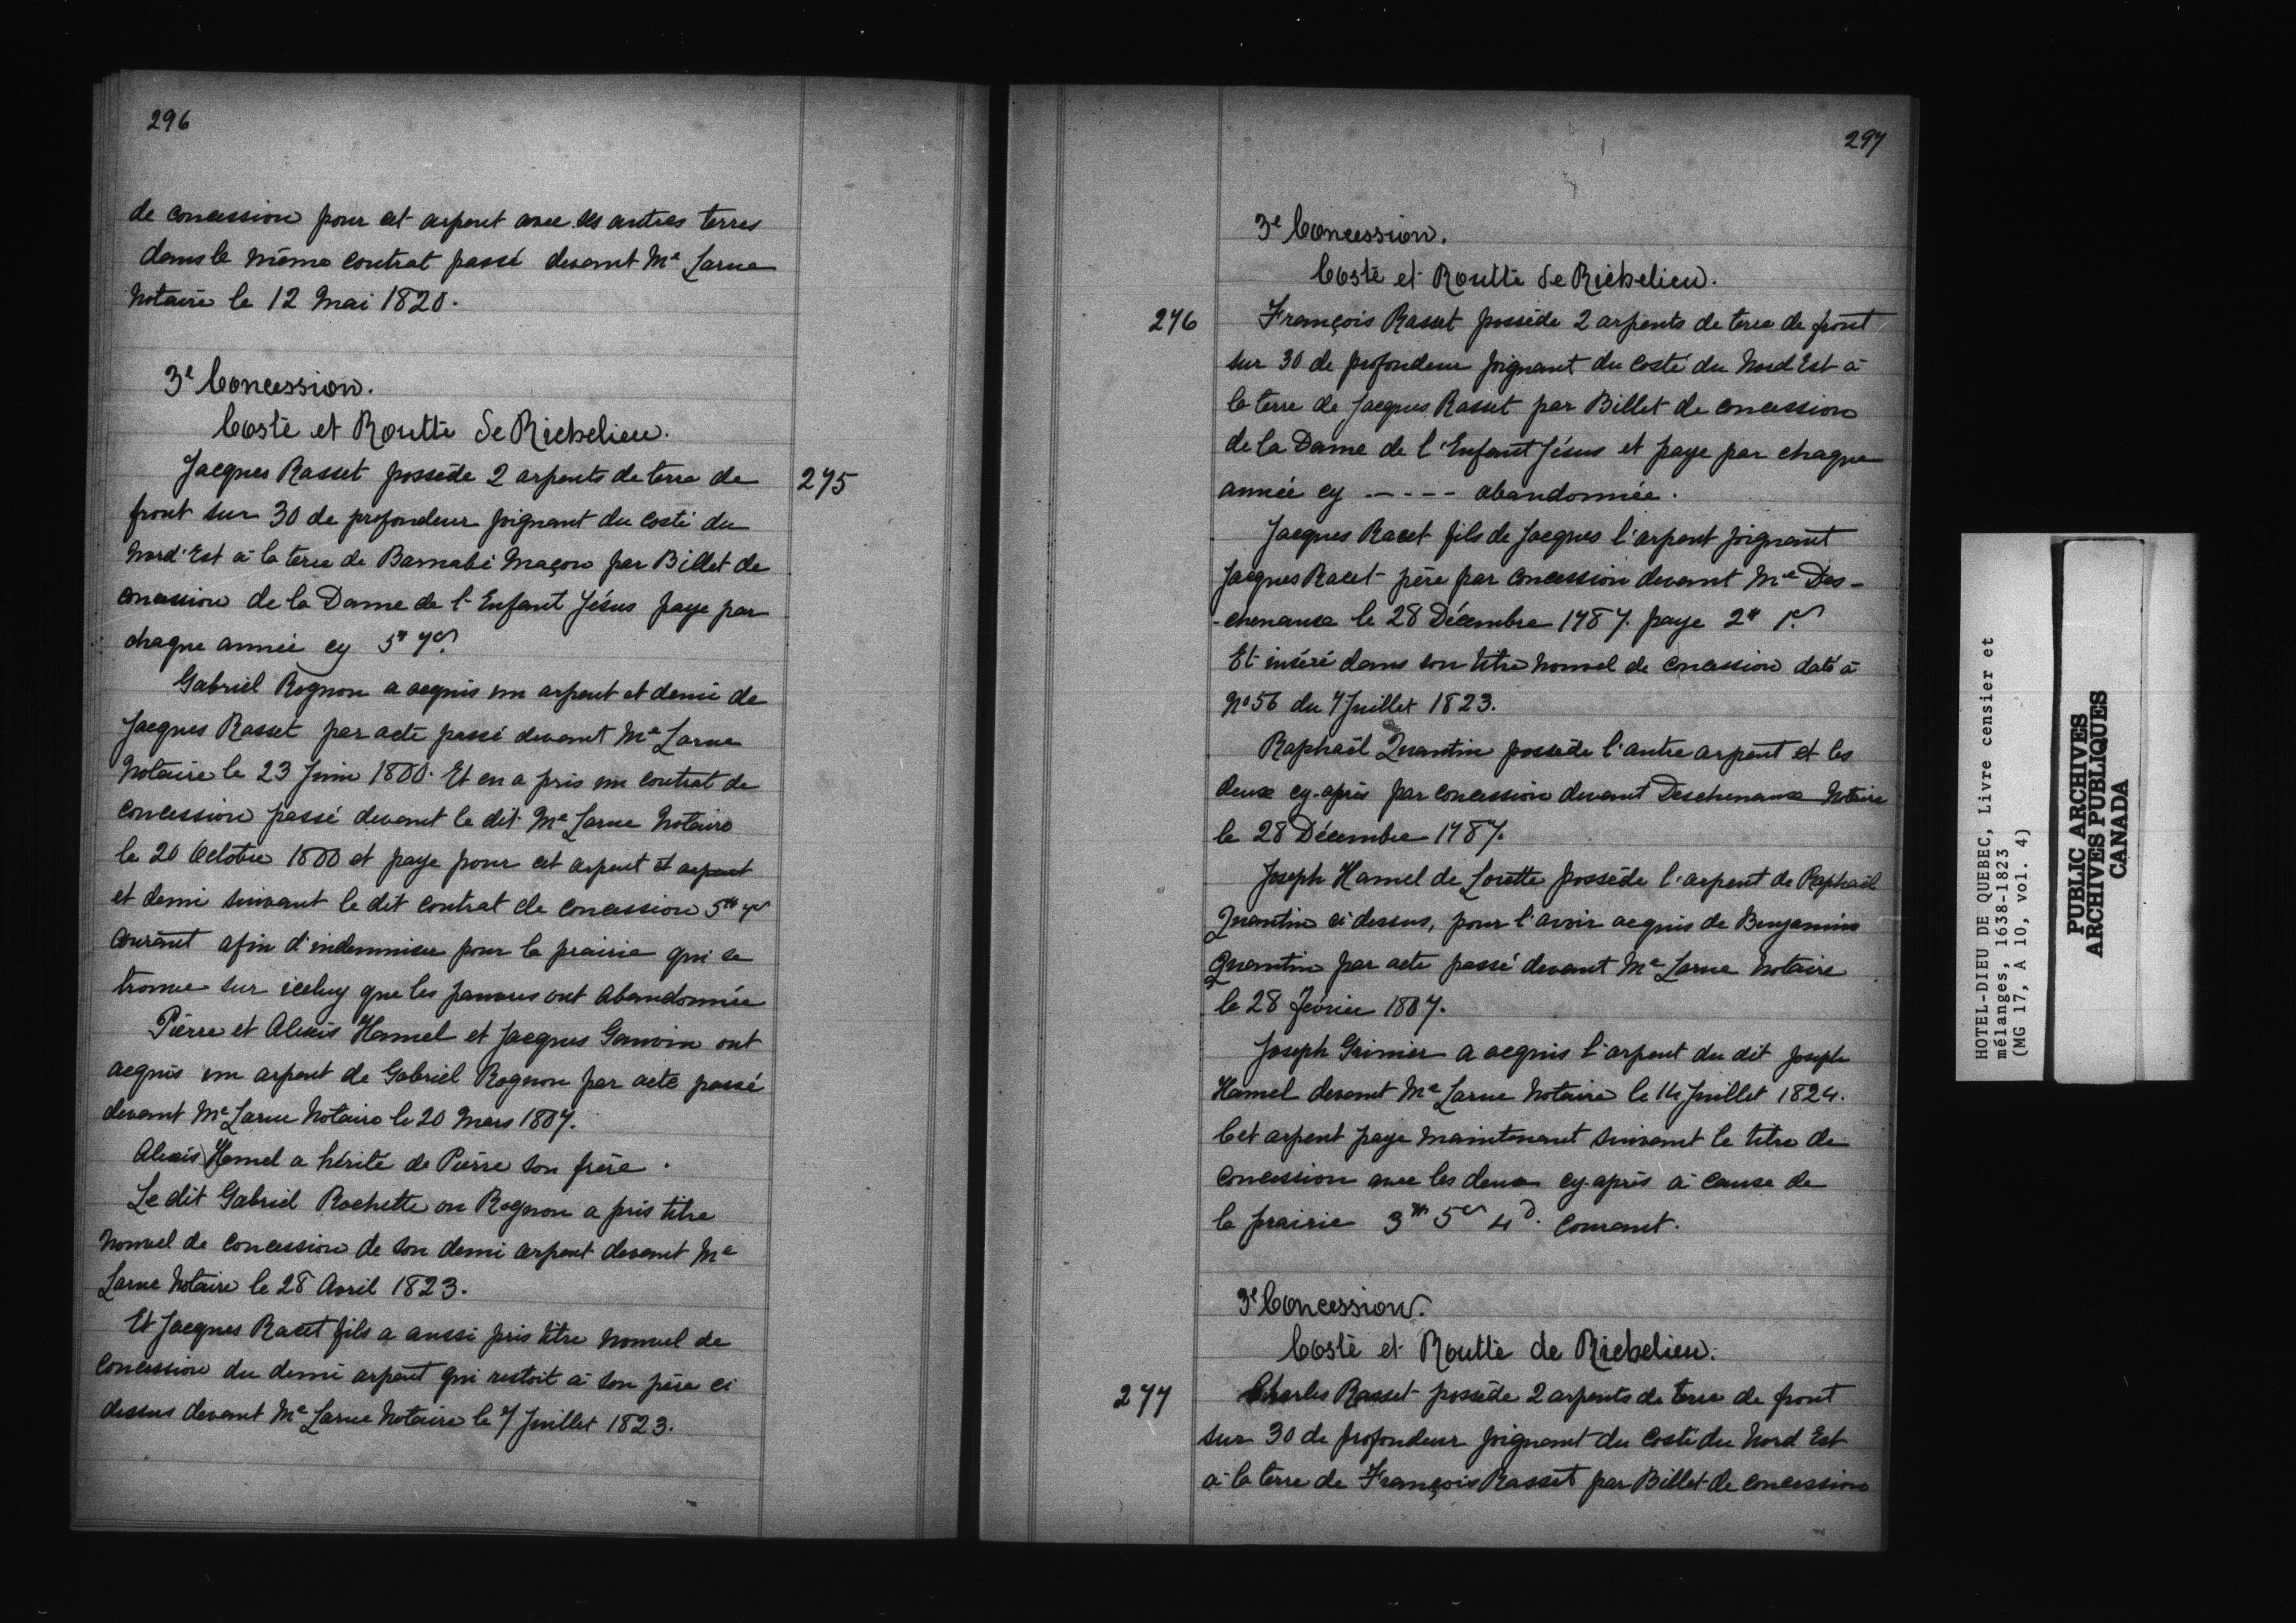 296
de concession pour cet arpent avec ses autres terres
dans le même contrat passé devant Me Larue
Notaire le 12 Mai 1820.
3e Concession.
Costé et Routte de Richelieu.
275
Jacques Rasset possède 2 arpents de terre de
front sur 30 de profondeur joignant du costé du
Nord'Est à la terre de Barnabé Maçon par Billet de
concession de la Dame de l'Enfant Jésus paye par
chaque année cy 5# 7s
Gabriel Rognon a acquis un arpent et demi de
Jacques Rasset par acte passé devant Me Larue
Notaire le 23 Juin 1800. Et en a pris un contrat de
concession passé devant le dit Me Larue Notaire
le 20 Octobre 1800 et paye pour cet arpent et arpent
et demi suivant le dit contrat de concession 5# 7s
courant afin d'indemniser pour la prairie qui se
trouve sur iceluy que les pauvres ont abandonnée
Pierre et Alexis Hamel et Jacques Gauvin ont
acquis un arpent de Gabriel Rognon par acte passé
devant Me Larue Notaire le 20 Mars 1807.
Alexis Hamel a hérité de Pierre son frère.
Le dit Gabriel Rochette ou Rognon a pris titre
nouvel de concession de son demi arpent devant Me
Larue Notaire le 28 Avril 1823.
Et Jacques Racet fils a aussi pris titre nouvel de
concession du demi arpent qui restoit à son père ci
dessus devant Me Larue Notaire le 7 Juillet 1823.
297
3e Concession.
Costé et Routte de Richelieu.
276
François Rasset possède 2 arpents de terre de front
sur 30 de profondeur joignant du costé du Nord Est à
la terre de Jacques Rasset par Billet de concession
de la Dame de l'Enfant Jésus et paye par chaque
année cy ----- abandonnée.
Jacques Racet fils de Jacques l'arpent joignant
Jacques Racet père par concession devant Me Des-
-chenaux le 28 Décembre 1787. paye 2# 1s
Et inséré dans son titre nouvel de concession daté à
No 56 du 7 Juillet 1823.
Raphaël Quantin possède l'autre arpent et les
deux cy-après par concession devant Deschenaux Notaire
le 28 Décembre 1787.
Joseph Hamel de Lorette possède l'arpent de Raphaël
Quantin ci-dessus, pour l'avoir acquis de Benjamin
Quantin par acte passé devant Me Larue Notaire
le 28 Février 1807.
Joseph Grinier a acquis l'arpent du dit Joseph
Hamel devant Me Larue Notaire le 14 Juillet 1824.
Cet arpent paye maintenant suivant le titre de
concession avec les deux cy-après à cause de
la prairie 3# 5s 4d. courant.
3e Concession.
Costé et Routte de Richelieu.
277
Charles Rasset possède 2 arpents de terre de front
sur 30 de profondeur joignant du costé du Nord Est
à la terre de François Rasset par Billet de concession
HOTEL-DIEU DE QUEBEC, Livre censier et
mélanges, 1638-1823
(MG 17, A 10, vol. 4)
PUBLIC ARCHIVES
ARCHIVES PUBLIQUES
CANADA